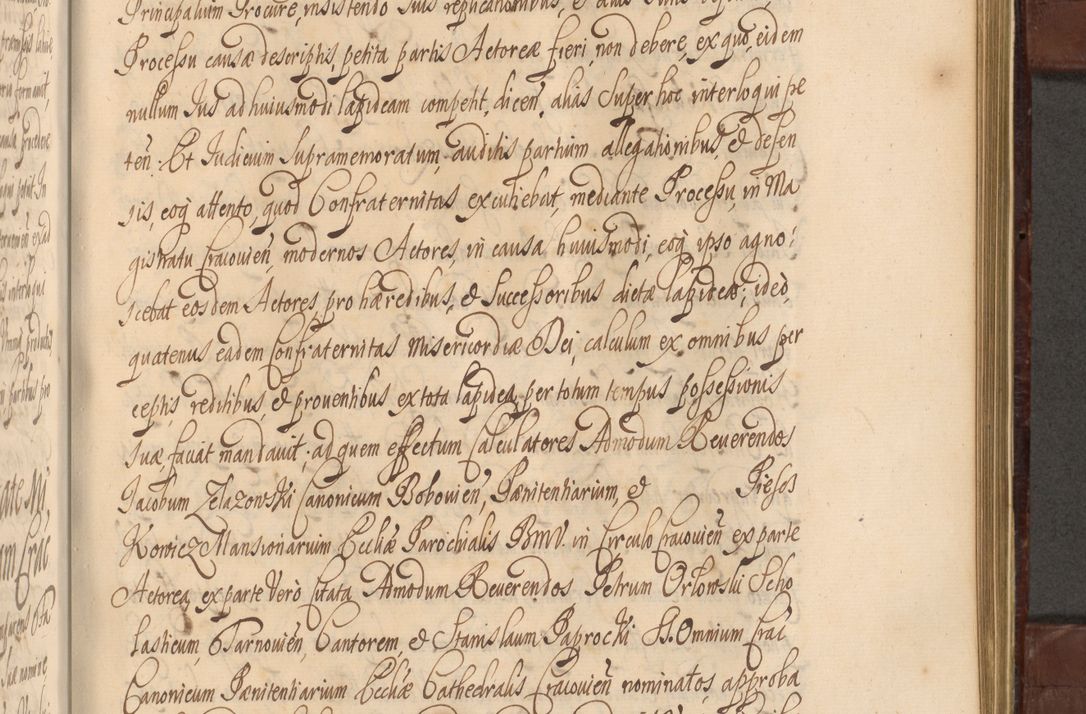 Principalium Procure, insistendo suis replicationibus, & alias
Processu causæ descriptis, petita partis Actoreæ fieri, non debere, ex quo, eidem
nullum Jus ad huiusmodi lapideam competit, dicen̄, aliàs super hoc interloqui pe
ten̄. Et Judicium supramemoratum, auditis partium allegationibus, & defen
sis, eoq̨ attento, quod Confraternitas excutiebat, mediante Processu, in Ma
gistratu Cracovien̄, modernos Actores, in causa, huiusmodi, eoq̨ ipso agno:
scebat eosdem Actores, pro hæredibus, & Successoribus dictæ lapideæ, ideò,
quatenus eadem Confraternitas Misericordiæ Dei, calculum ex omnibus per
ceptis, reditibus, & proventibus ex tota lapidea, per totum tempus possessionis
suæ, faciat mandavit; ad quem effectum Calculatores Admodum Reverendos
Jacobum Zelazowski Canonicum Bobovien̄, Pænitentiarium, & Piesos
Kowicz Mansionarium Eccl̄iæ Parochialis BMV. in Circulo Cracovien̄ ex parte
Actorea, ex parte verò Citata, Admodum Reverendos Petrum Orlowski Scho
lasticum, Tarnovien̄, Cantorem, & Stanislaum Paprocki SS. Omnium Crac̄
Canonicum Pænitentiarium Eccl̄iæ Cathedralis Cracovien̄ nominatos, approba